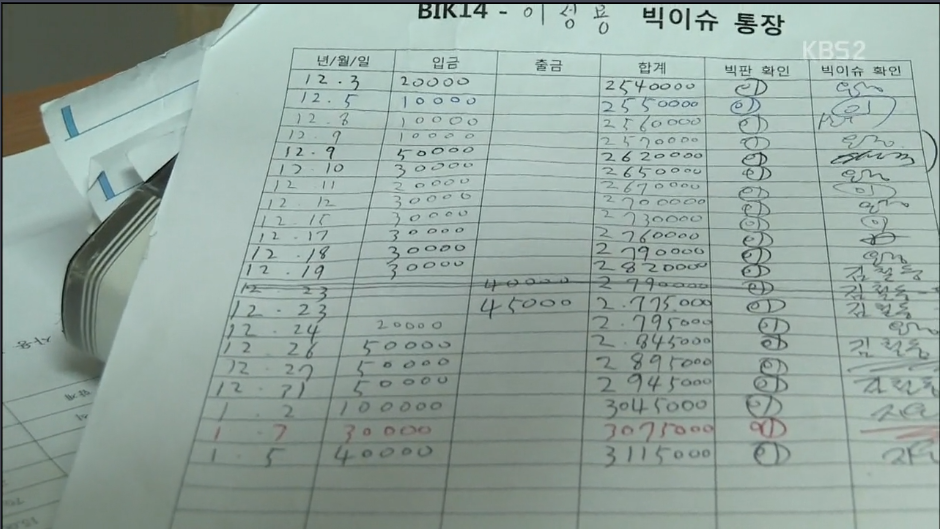 BIK14 - 이성용 빅이슈 통장
KBS2
년/월/일 입금 출금 합계 빅판 확인 빅이슈 확인
12.3 20000 2540000 이
12.5 10000 2550000 이 이
12.8 10000 2560000 이
12.9 10000 2570000 이
12.9 50000 2620000 이
12.10 30000 2650000 이
12 11 20000 2670000 이 이
12.12 30000 2700000 이
12.15 30000 2730000 이 이
12.17 30000 2760000 이
12.18 30000 2790000 이
12.19 30000 2820000 이
12 23 40000 2790000 이
12.23 45000 2.775000 이
12.24 20000 2.795000 이
12.26 50000 2.845000 이
12.27 50000 2895000 이
12.31 50000 2945000 이
1.2 100000 3045000 이
1.7 30000 3075000 이
1.5 40000 3115000 이